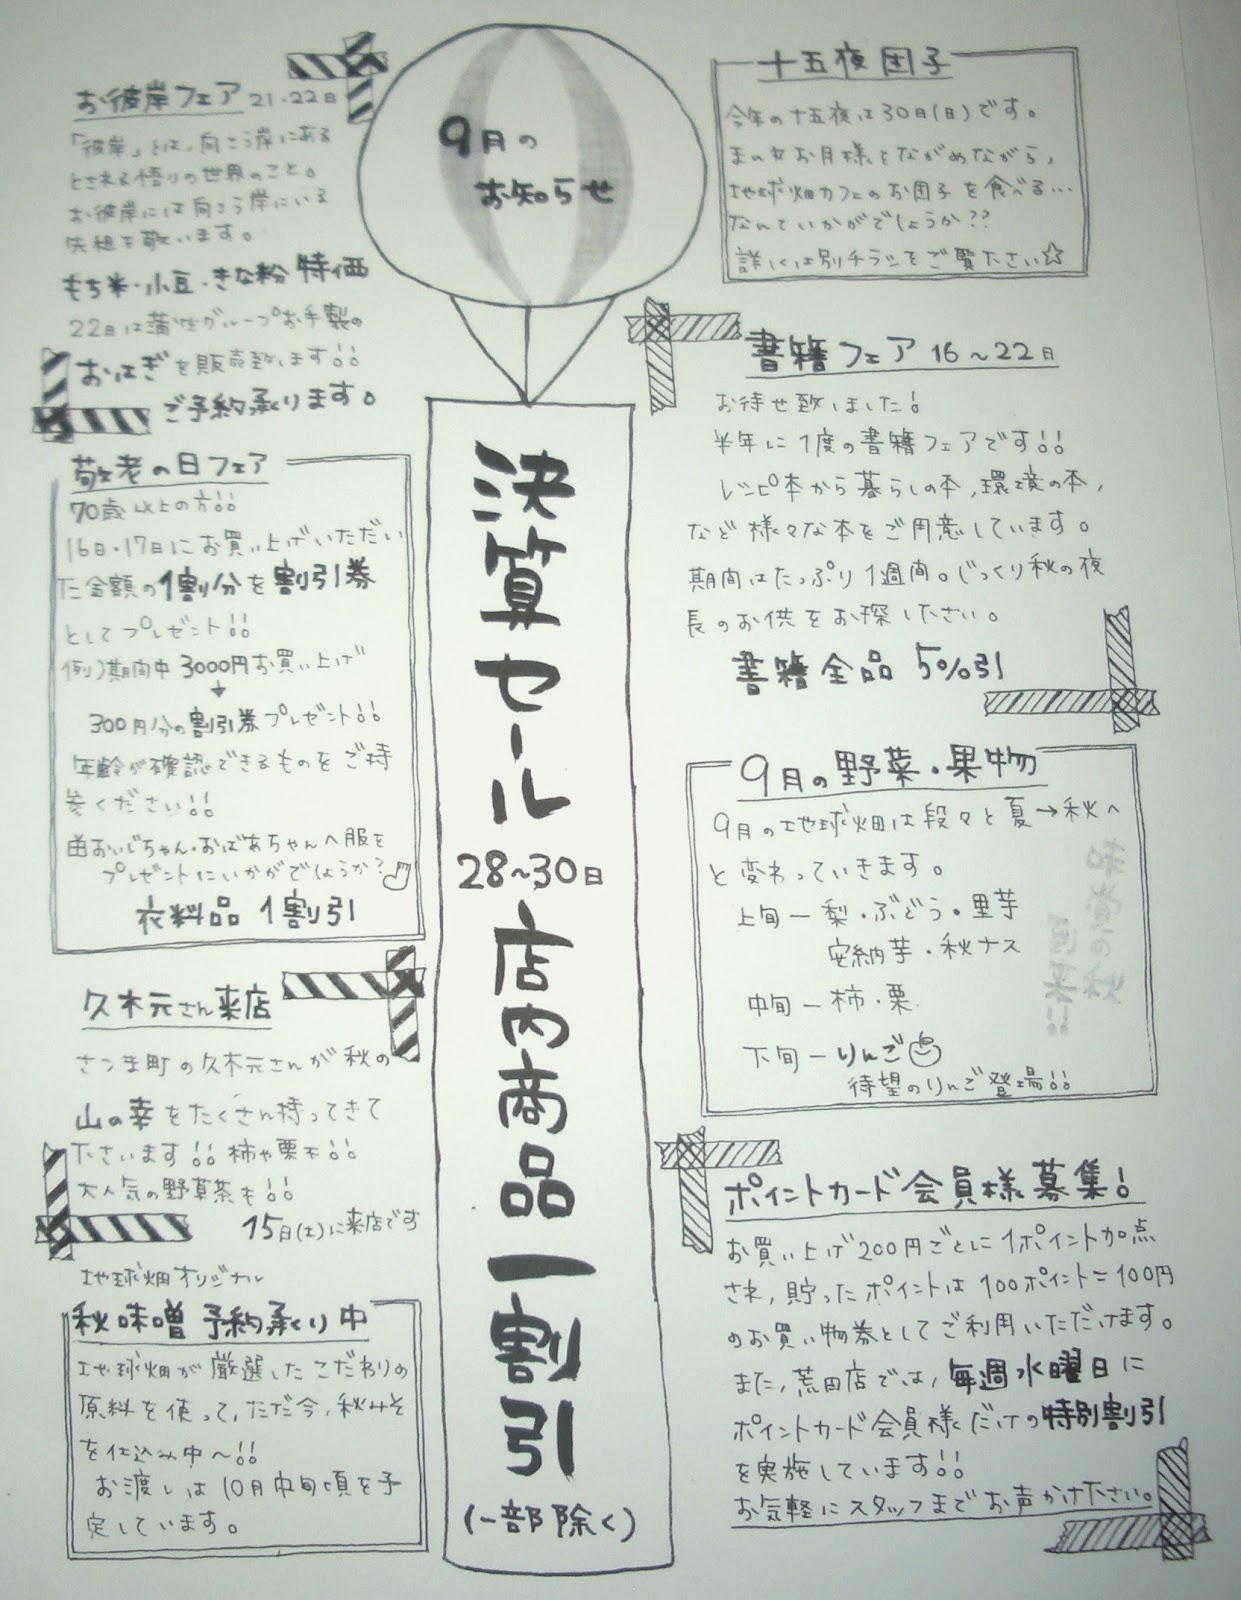 9月の
お知らせ
決算セール
28〜30日
店内商品一割引
(一部除く)
お彼岸フェア 21・22日
「彼岸」とは、向こう岸にある
とされる悟りの世界のこと。
お彼岸には向こう岸にいる
先祖を敬います。
もち米・小豆・きな粉 特価
22日は蒲生グループお手製の
おはぎを販売致します!!
ご予約承ります。
敬老の日フェア
70歳以上の方!!
16日・17日にお買い上げいただい
た金額の1割分を割引券
としてプレゼント!!
例)期間中 3000円お買い上げ
↓
300円分の割引券プレゼント!!
年齢が確認できるものをご持
参ください!!
おじいちゃん・おばあちゃんへ服を
プレゼントにいかがでしょうか?
衣料品 1割引
久木元さん来店
さつま町の久木元さんが秋の
山の幸をたくさん持ってきて
下さいます!! 柿や栗も!!
大人気の野草茶も!!
15日(土)に来店です
地球畑オリジナル
秋味噌 予約承り中
地球畑が厳選したこだわりの
原料を使って、ただ今、秋みそ
を仕込み中〜!!
お渡しは10月中旬頃を予
定しています。
十五夜団子
今年の十五夜は30日(日)です。
まぁるいお月様をながめながら、
地球畑カフェのお団子を食べる…
なんていかがでしょうか??
詳しくは別チラシをご覧下さい☆
書籍フェア 16〜22日
お待せ致しました!
半年に1度の書籍フェアです!!
レシピ本から暮らしの本、環境の本、
など様々な本をご用意しています。
期間はたっぷり1週間。じっくり秋の夜
長のお供をお探し下さい。
書籍全品 5%引
9月の野菜・果物
9月の地球畑は段々と夏→秋へ
と変わっていきます。
上旬ー梨・ぶどう・里芋
安納芋・秋ナス
中旬ー柿・栗
下旬ーりんご
待望のりんご登場!!
味覚の秋
到来!!
ポイントカード会員様募集!
お買い上げ200円ごとに1ポイント加点
され、貯ったポイントは100ポイント=100円
のお買い物券としてご利用いただけます。
また、荒田店では、毎週水曜日に
ポイントカード会員様だけの特別割引
を実施しています!!
お気軽にスタッフまでお声かけ下さい。